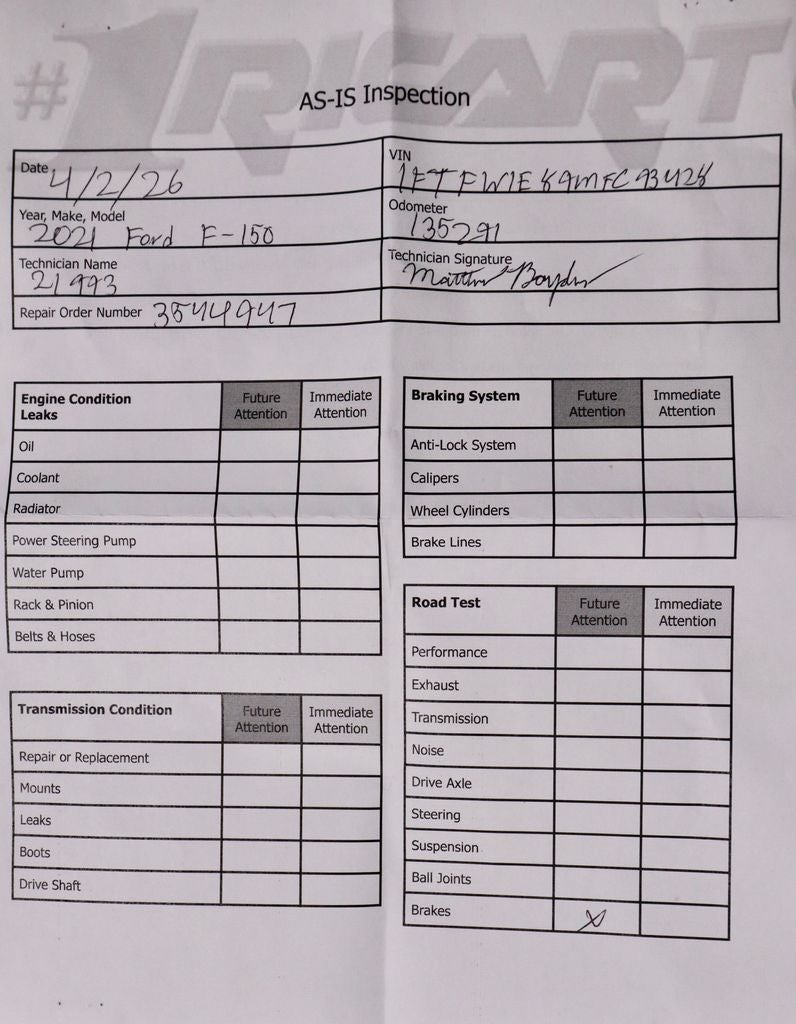 #1 RICART
AS-IS Inspection
Date 4/2/26
VIN 1FTFW1E89MFC93428
Year, Make, Model 2021 Ford F-150
Odometer 135291
Technician Name 21993
Technician Signature Matthew
Repair Order Number 3544947
Engine Condition Leaks Future Attention Immediate Attention
Oil
Coolant
Radiator
Power Steering Pump
Water Pump
Rack & Pinion
Belts & Hoses
Transmission Condition Future Attention Immediate Attention
Repair or Replacement
Mounts
Leaks
Boots
Drive Shaft
Braking System Future Attention Immediate Attention
Anti-Lock System
Calipers
Wheel Cylinders
Brake Lines
Road Test Future Attention Immediate Attention
Performance
Exhaust
Transmission
Noise
Drive Axle
Steering
Suspension
Ball Joints
Brakes X